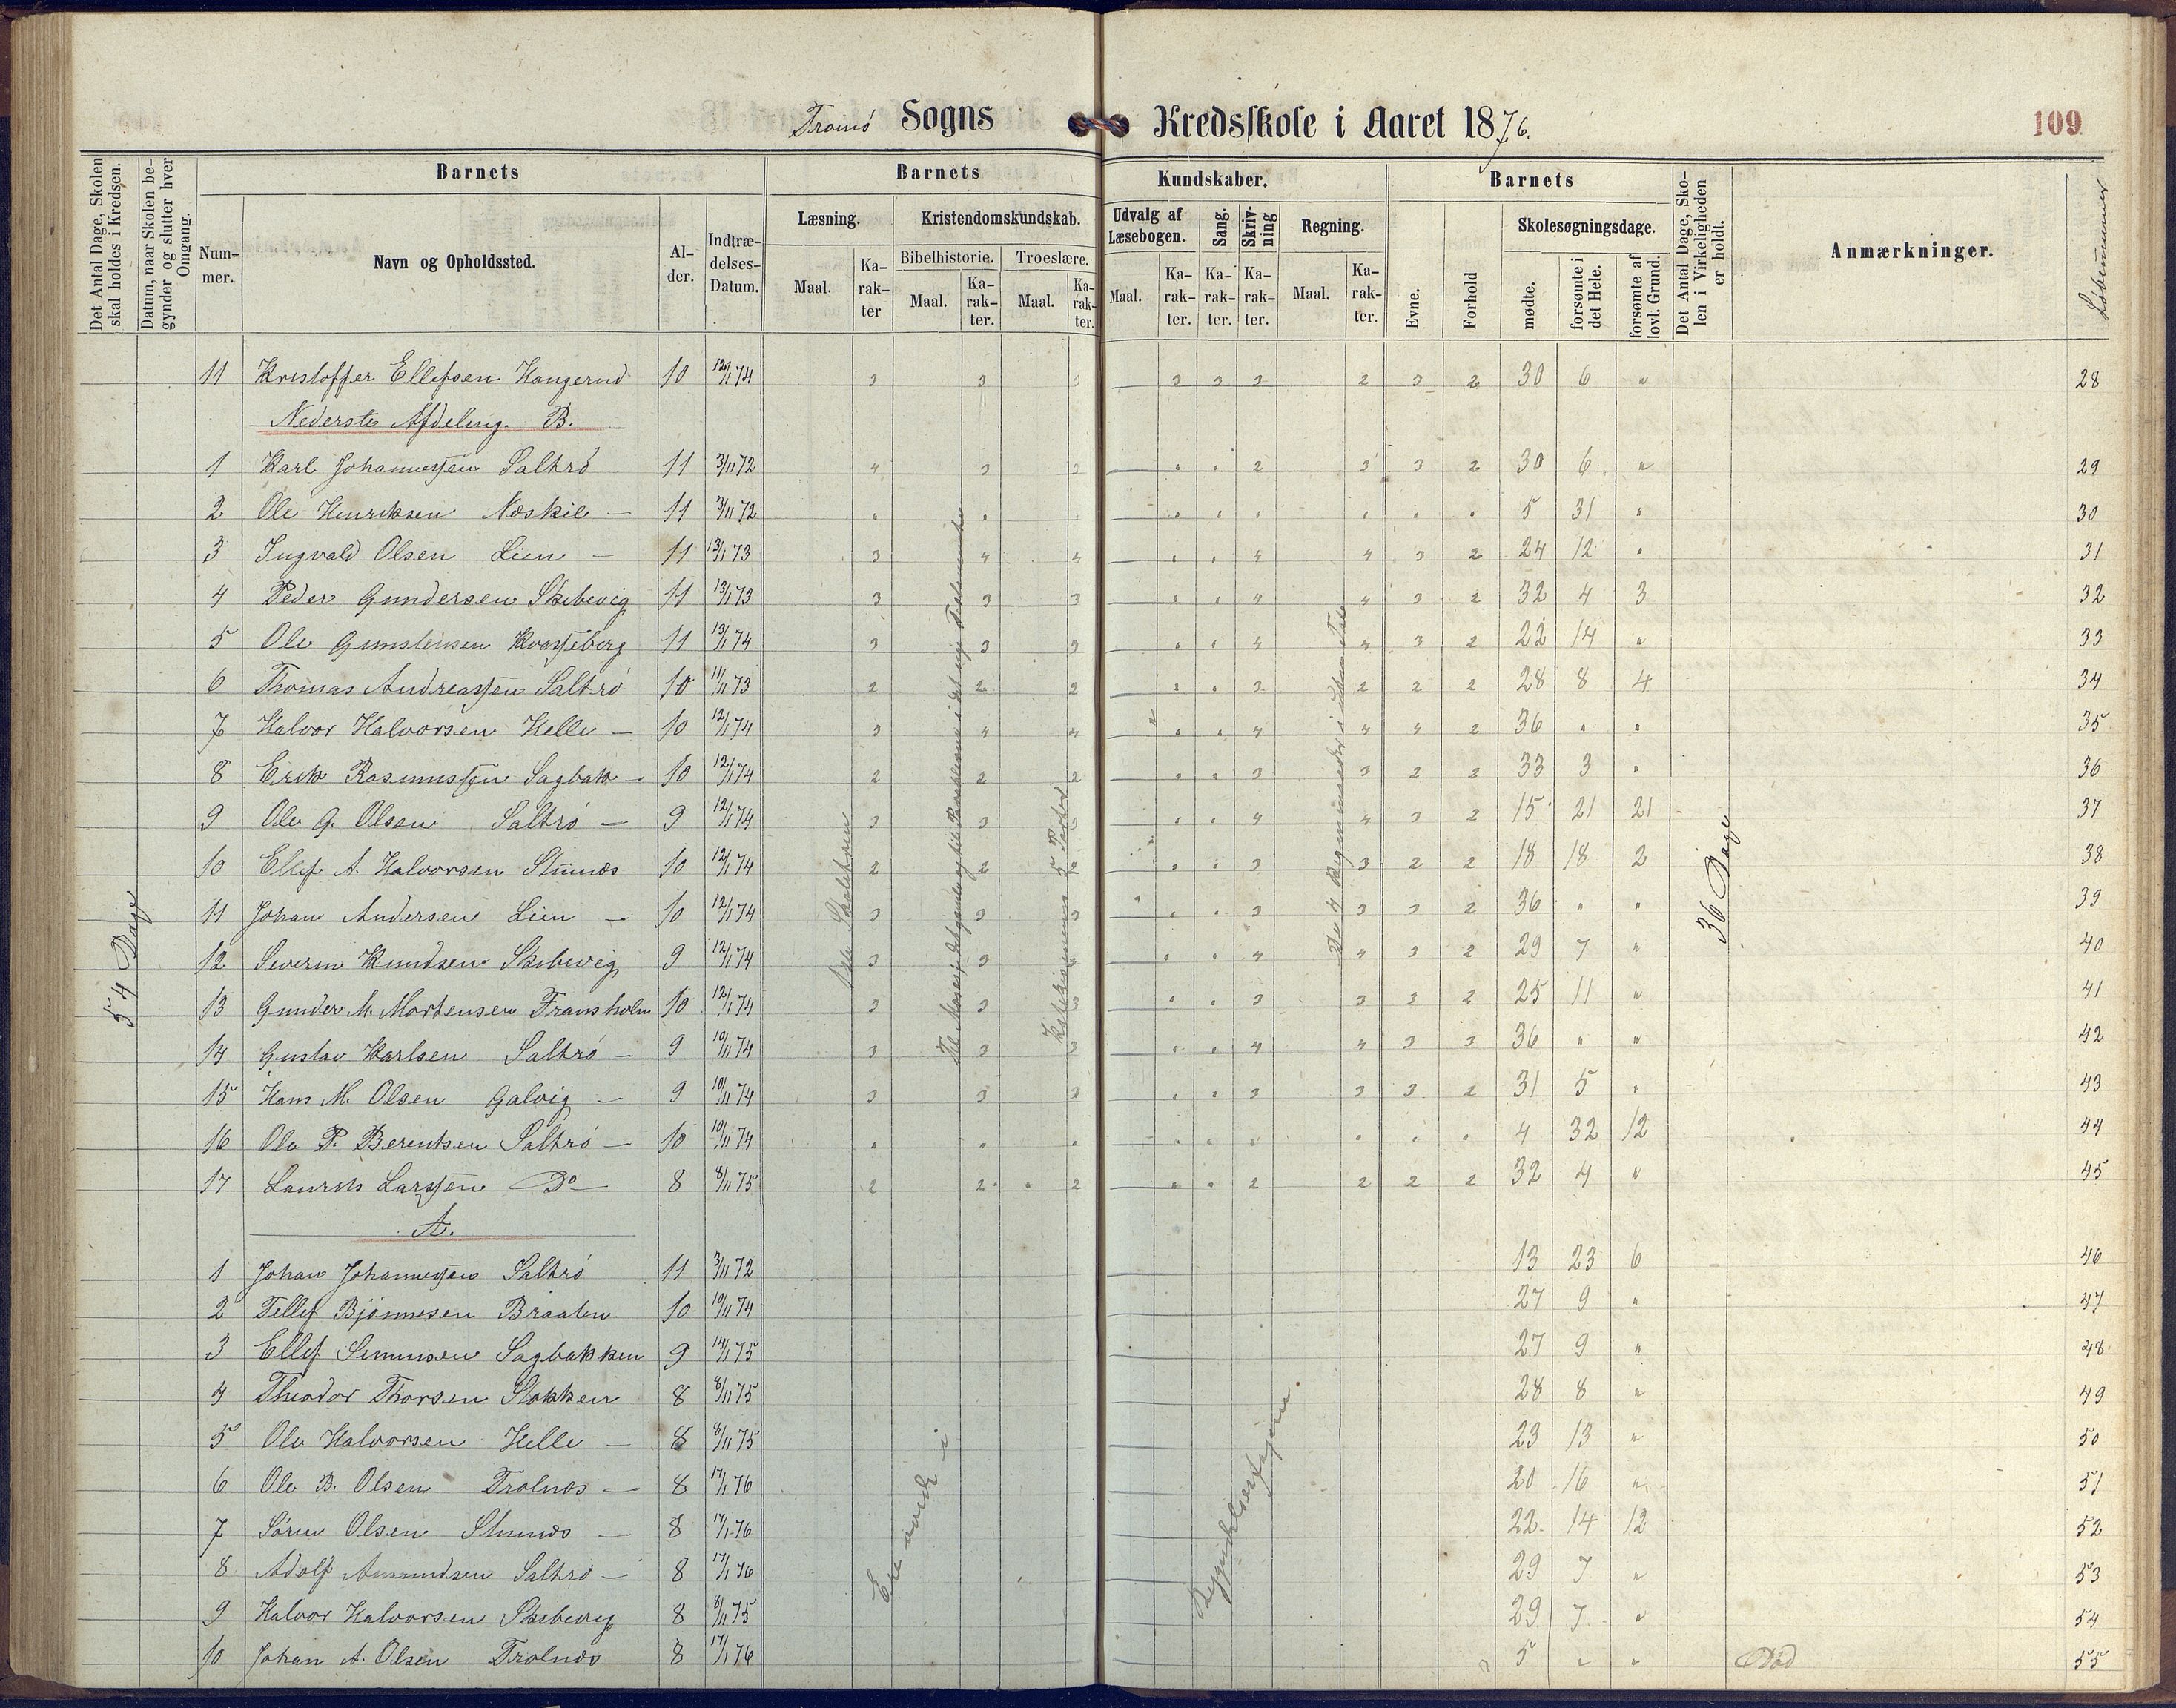 Tromø Sogns Kredsskole i Aaret 1876. 109
Det Antal Dage, Skolen skal holdes i Kredsen.
Datum, naar Skolen begynder og slutter hver Omgang.
Barnets
Nummer.
Navn og Opholdssted.
Alder.
Indtrædelses-Datum.
Barnets Kundskaber.
Læsning. Maal. Karakter
Kristendomskundskab.
Bibelhistorie. Maal. Karakter.
Troeslære. Maal. Karakter.
Udvalg af Læsebogen. Maal. Karakter.
Sang. Karakter.
Skrivning Karakter.
Regning. Maal. Karakter.
Barnets
Evne.
Forhold
Skolesøgningsdage.
mødte.
forsømte i det Hele.
forsømte af lovl. Grund.
Det Antal Dage, Skolen i Virkeligheden er holdt.
Anmærkninger.
Löbenummer
11 Kristoffer Ellefsen Haugerud 10 12/1 74 3 3 3 3 3 3 2 3 2 30 6 " 28
Nederste Afdeling. B.
1 Karl Johannessen Saltrö 11 3/11 72 4 3 3 " " 2 3 3 2 30 6 " 29
2 Ole Henriksen Næskil — 11 3/11 72 " " " " " " " " " 5 31 " 30
3 Ingvald Olsen Lien — 11 13/1 73 3 4 4 " " 4 4 3 2 24 12 " 31
4 Peder Gundersen Skibevig 11 13/1 73 3 3 3 " " 4 4 3 2 32 4 3 32
5 Ole Gunstensen Kvasseberg 11 13/1 74 3 3 3 " " 4 4 3 2 22 14 " 33
6 Thomas Andreassen Saltrö 10 11/11 73 2 2 2 " " 3 2 2 2 28 8 4 34
7 Halvor Halvorsen Helle — 10 12/1 74 3 4 4 " " 4 4 4 2 36 " " 35
8 Erik Rasmussen Sagbak — 10 12/1 74 2 2 2 " " 3 3 2 2 33 3 " 36
9 Ole G. Olsen Saltrö — 9 12/1 74 3 3 3 " " 4 4 3 2 15 21 21 37
10 Ellef A. Halvorsen Stumæs 10 12/1 74 2 2 " " 3 3 2 2 18 18 2 38
11 Johan Andersen Lien — 10 12/1 74 3 3 3 " " 3 3 3 2 36 " " 39
12 Severin Knudsen Skibevig 9 12/1 74 3 3 " " 4 4 3 2 29 7 " 40
13 Gunder M. Mortensen Fransholm 10 12/1 74 3 3 3 " " 3 3 3 2 25 11 " 41
14 Gustav Karlsen Saltrö — 9 10/11 74 3 3 3 " " 4 4 3 3 36 " " 42
15 Hans M. Olsen Galvig — 9 10/11 74 3 3 3 " " 3 3 3 2 31 5 " 43
16 Ole P. Berentsen Saltrö — 10 10/11 74 " " " " " " " " " 4 32 12 44
17 Laurits Larssen Do — 8 8/11 75 2 2 2 " " 2 2 2 2 32 4 " 45
54 Dage
36 Dage
Katekismens 5 Parter
A.
1 Johan Johannessen Saltrö 11 3/11 72 13 23 6 46
2 Tellef Bjönnesen Braaten 10 10/11 74 27 9 " 47
3 Ellef Simonsen Sagbakken 9 14/1 75 27 9 " 48
4 Theodor Thorsen Stokken 8 8/11 75 28 8 " 49
5 Ole Halvorsen Helle — 8 8/11 75 23 13 " 50
6 Ole B. Olsen Trolnæs — 8 17/1 76 20 16 " 51
7 Sören Olsen Stumæs — 8 17/1 76 22 14 12 52
8 Adolf Amundsen Saltrö — 8 17/1 76 29 7 " 53
9 Halvor Halvorsen Skibevig 8 8/11 75 29 7 " 54
10 Johan A. Olsen Trolnæs 8 17/1 76 5 " " Död 55
Ere i